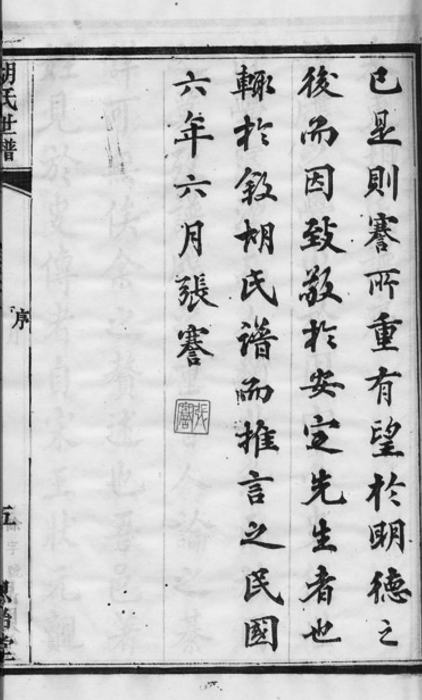 已是則謇所重有望於明德之
後而因致敬於安定先生者也
輒於敘胡氏譜而推言之民國
六年六月張謇
張謇
胡氏世譜
序
五